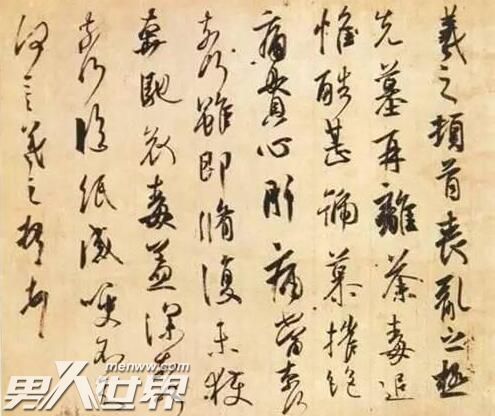 羲之頓首喪亂之極
先墓再離荼毒追
惟酷甚號慕摧絕
痛貫心肝痛當奈何
奈何雖即脩復未獲
奔馳哀毒益深奈何
奈何臨紙感哽不知
何言羲之頓首頓首
menww.com
男人世界